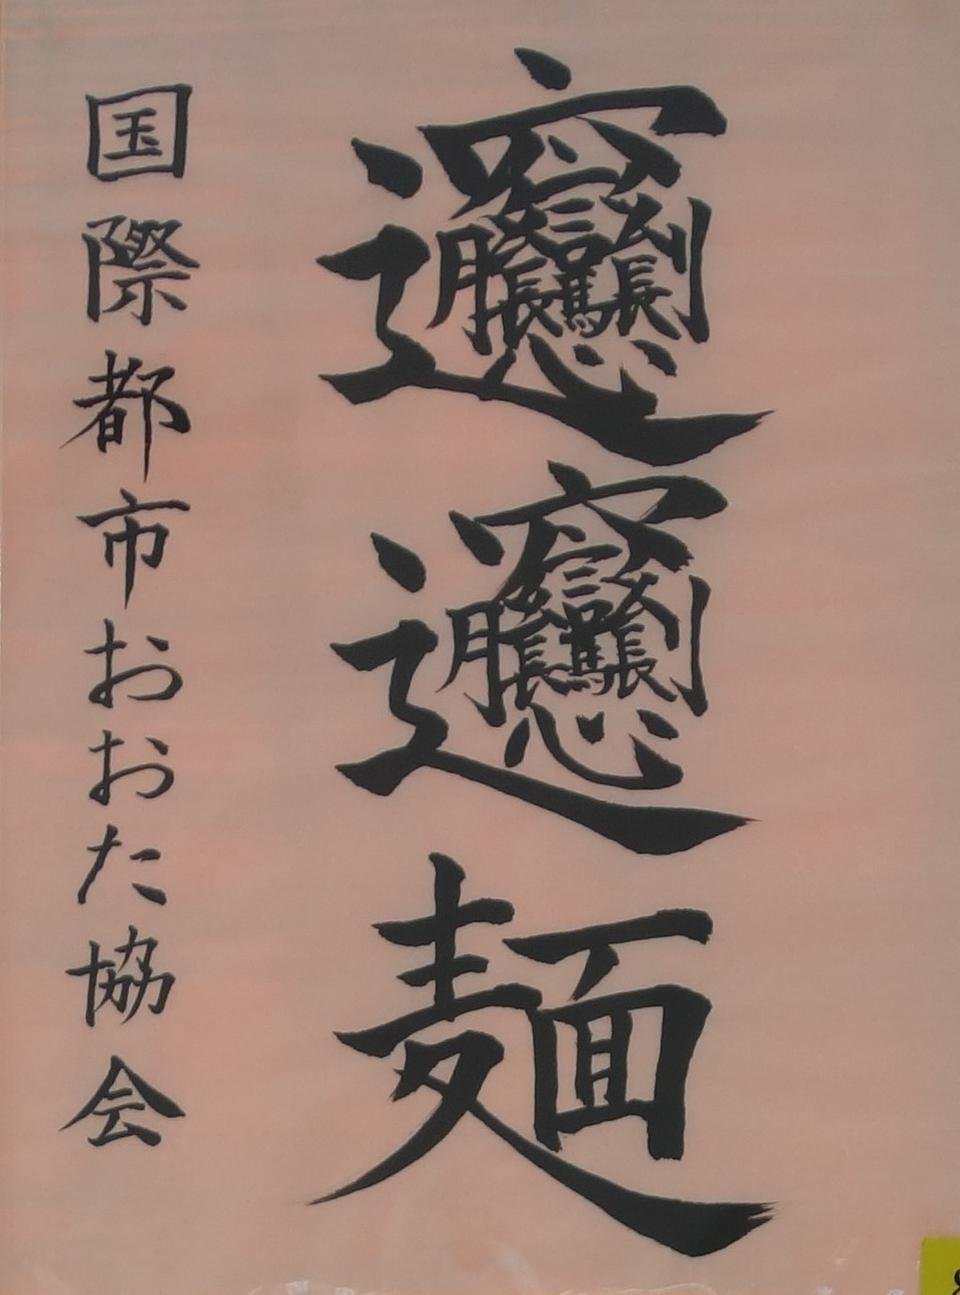 𰻞𰻞麺
国際都市おおた協会